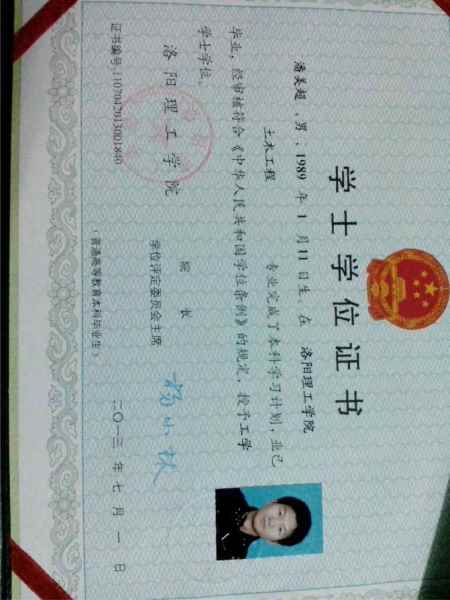 学士学位证书
潘昊超，男，1989 年 1 月 11 日生。在 洛阳理工学院
土木工程 专业完成了本科学习计划，业已
毕业，经审核符合《中华人民共和国学位条例》的规定，授予工学
学士学位。
洛阳理工学院
院长
学位评定委员会主席
杨小林
证书编号:1107042013001840
二〇一三 年 七 月 一 日
（普通高等教育本科毕业生）